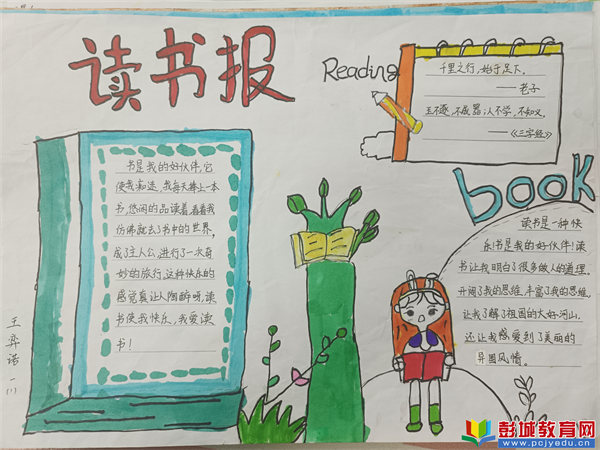 读书报
Reading
千里之行，始于足下。
——老子
玉不琢，不成器；人不学，不知义。
——《三字经》
书是我的好伙伴，它
使我着迷，我每天捧上一本
书，悠闲的品读着，看着我
仿佛就去了书中的世界，
成了主人公，进行了一次奇
妙的旅行，这种快乐的
感觉真让人陶醉呀，读
书使我快乐，我爱读
书！
book
读书是一种快
乐！书是我的好伙伴！读
书让我明白了很多做人的道理。
开阔了我的思维，丰富了我的思维。
让我了解了祖国的大好河山，
还让我感受到了美丽的
异国风情。
王弈诺 一（1）
彭城教育网
www.pcjyedu.cn